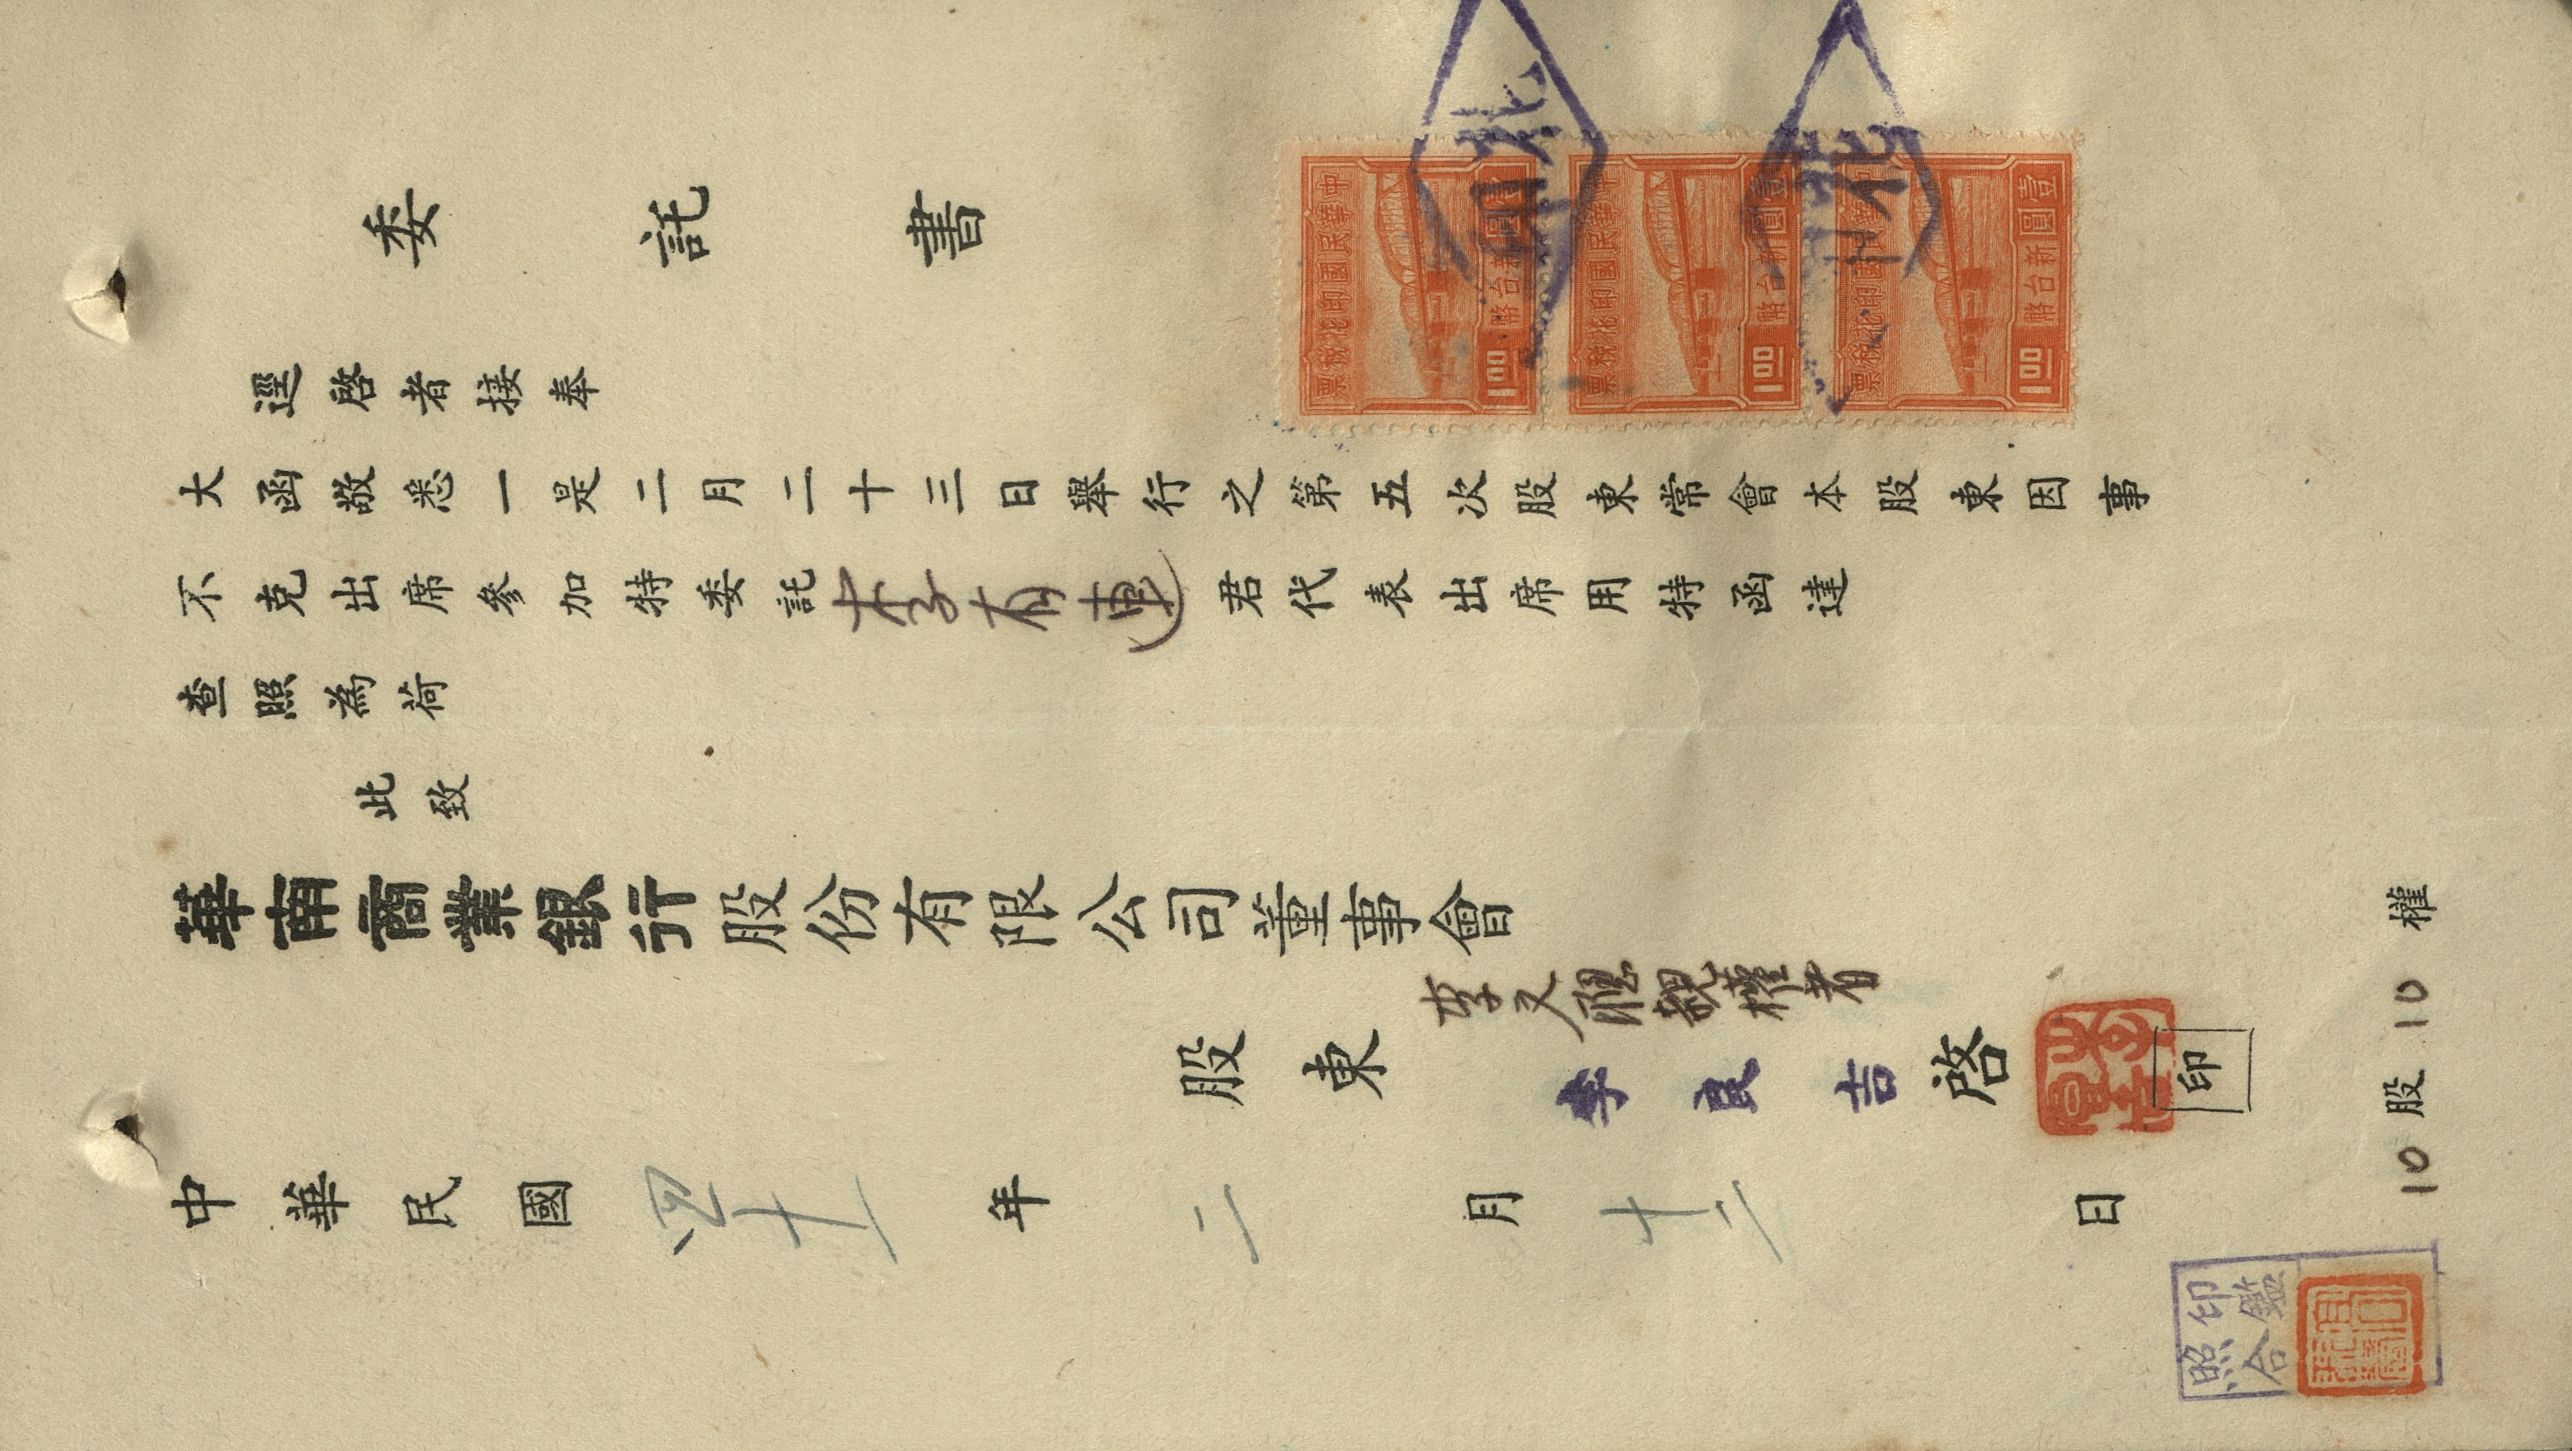 委託書
逕啓者接奉
大函敬悉一是二月二十三日舉行之第五次股東常會本股東因事
不克出席參加特委託李有連君代表出席用特函達
查照為荷
此致
華南商業銀行股份有限公司董事會
李文 親權者
股東 李良吉 啓
印
中華民國四十一年二月十二日
10股 10權
印鑑
照合
中華民國印花稅票
壹圓 新台幣
1.00
中華民國印花稅票
壹圓 新台幣
1.00
中華民國印花稅票
壹圓 新台幣
1.00